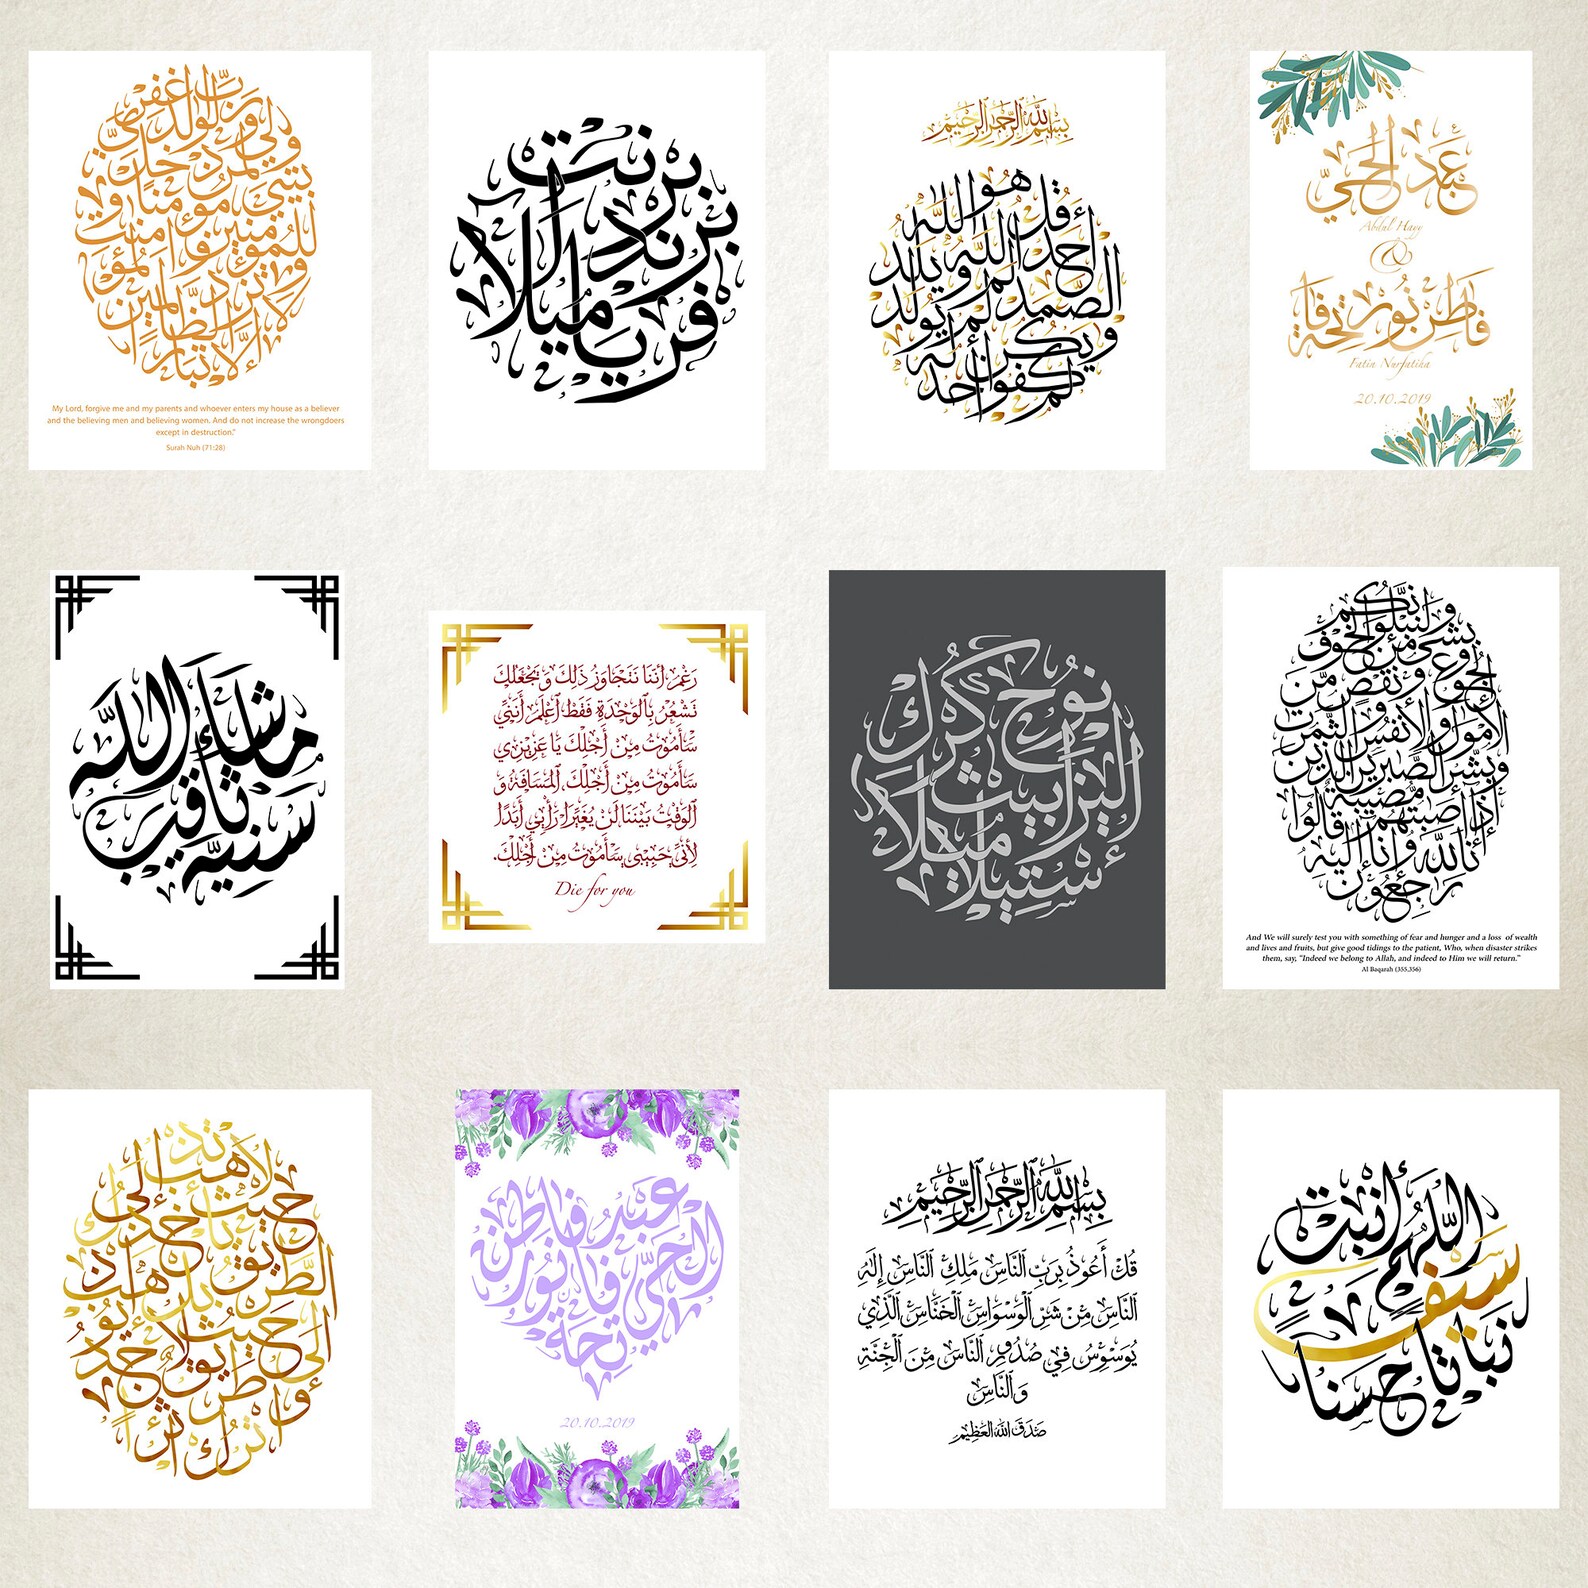 رَبِّ اغْفِرْ لِي وَلِوَالِدَيَّ وَلِمَن دَخَلَ بَيْتِيَ مُؤْمِنًا وَلِلْمُؤْمِنِينَ وَالْمُؤْمِنَاتِ وَلَا تَزِدِ الظَّالِمِينَ إِلَّا تَبَارًا
My Lord, forgive me and my parents and whoever enters my house as a believer
and the believing men and believing women. And do not increase the wrongdoers
except in destruction."
Surah Nuh (71:28)
برنت
فريا
بسم الله الرحمن الرحيم
قل هو الله أحد الله الصمد لم يلد ولم يولد ولم يكن له كفوا أحد
عبد الحي
Abdul Hayy
&
فاطن نور فاتحة
Fatin Nurfatiha
20.10.2019
ما شاء الله
سنية ثاقب
رَغْمَ أَنَّنَا نَتَجَاوَزُ ذَلِكَ وَيَجْعَلُكَ
نَشْعُرُ بِالوَحْدَةِ فَقَطْ أَعْلَمُ أَنَّنِي
سَأَمُوتُ مِنْ أَجْلِكَ يَا عَزِيزِي
سَأَمُوتُ مِنْ أَجْلِكَ، المَسَافَةُ وَ
الوَقْتُ بَيْنَنَا لَنْ يُغَيِّرَا رَأْيِي أَبَدًا
لِأَنِّي حَبِيبِي سَأَمُوتُ مِنْ أَجْلِكَ.
Die for you
نوح كرك
اليزابيث
ميلا
أستيلا
ولنبلونكم بشيء من الخوف والجوع ونقص من الأمول والأنفس والثمرت وبشر الصبرين الذين إذا أصبتهم مصيبة قالوا إنا لله وإنا إليه رجعون
And We will surely test you with something of fear and hunger and a loss of wealth
and lives and fruits, but give good tidings to the patient, Who, when disaster strikes
them, say, "Indeed we belong to Allah, and indeed to Him we will return."
Al Baqarah (355,356)
لا تذهب إلى حيث يأخذك الطريق بل اذهب إلى حيث لا يوجد طريق وأترك أثراً
عبد الحي فاطن نور فاتحة
20.10.2019
بسم الله الرحمن الرحيم
قُلْ أَعُوذُ بِرَبِّ النَّاسِ مَلِكِ النَّاسِ إِلَهِ
النَّاسِ مِنْ شَرِّ الْوَسْوَاسِ الْخَنَّاسِ الَّذِي
يُوَسْوِسُ فِي صُدُورِ النَّاسِ مِنَ الْجِنَّةِ
وَالنَّاسِ
صَدَقَ اللهُ العَظِيْم
اللهم أنبت
سيف
نباتا حسناً